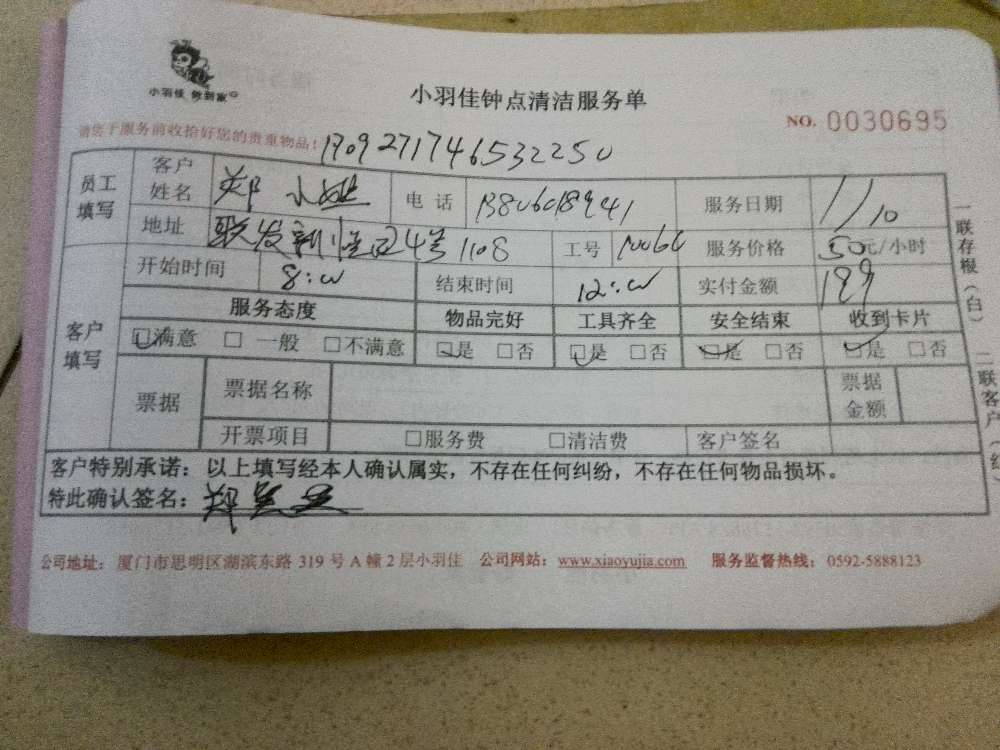 小羽佳 做到家
小羽佳钟点清洁服务单
NO. 0030695
请您于服务前收拾好您的贵重物品！ 1709271746532250
员工填写 客户姓名 郑小姐 电话 13806018941 服务日期 1/10
地址 联发新 24号 1108 工号 服务价格 50元/小时
客户填写 开始时间 8:00 结束时间 12:00 实付金额 199
服务态度 物品完好 工具齐全 安全结束 收到卡片
☑满意 □一般 □不满意 ☑是 □否 ☑是 □否 ☑是 □否 ☑是 □否
票据 票据名称 票据金额
开票项目 □服务费 □清洁费 客户签名
客户特别承诺：以上填写经本人确认属实，不存在任何纠纷，不存在任何物品损坏。
特此确认签名：郑
一联存根（白） 二联客户（红
公司地址：厦门市思明区湖滨东路 319 号 A 幢 2 层小羽佳 公司网站：www.xiaoyujia.com 服务监督热线：0592-5888123